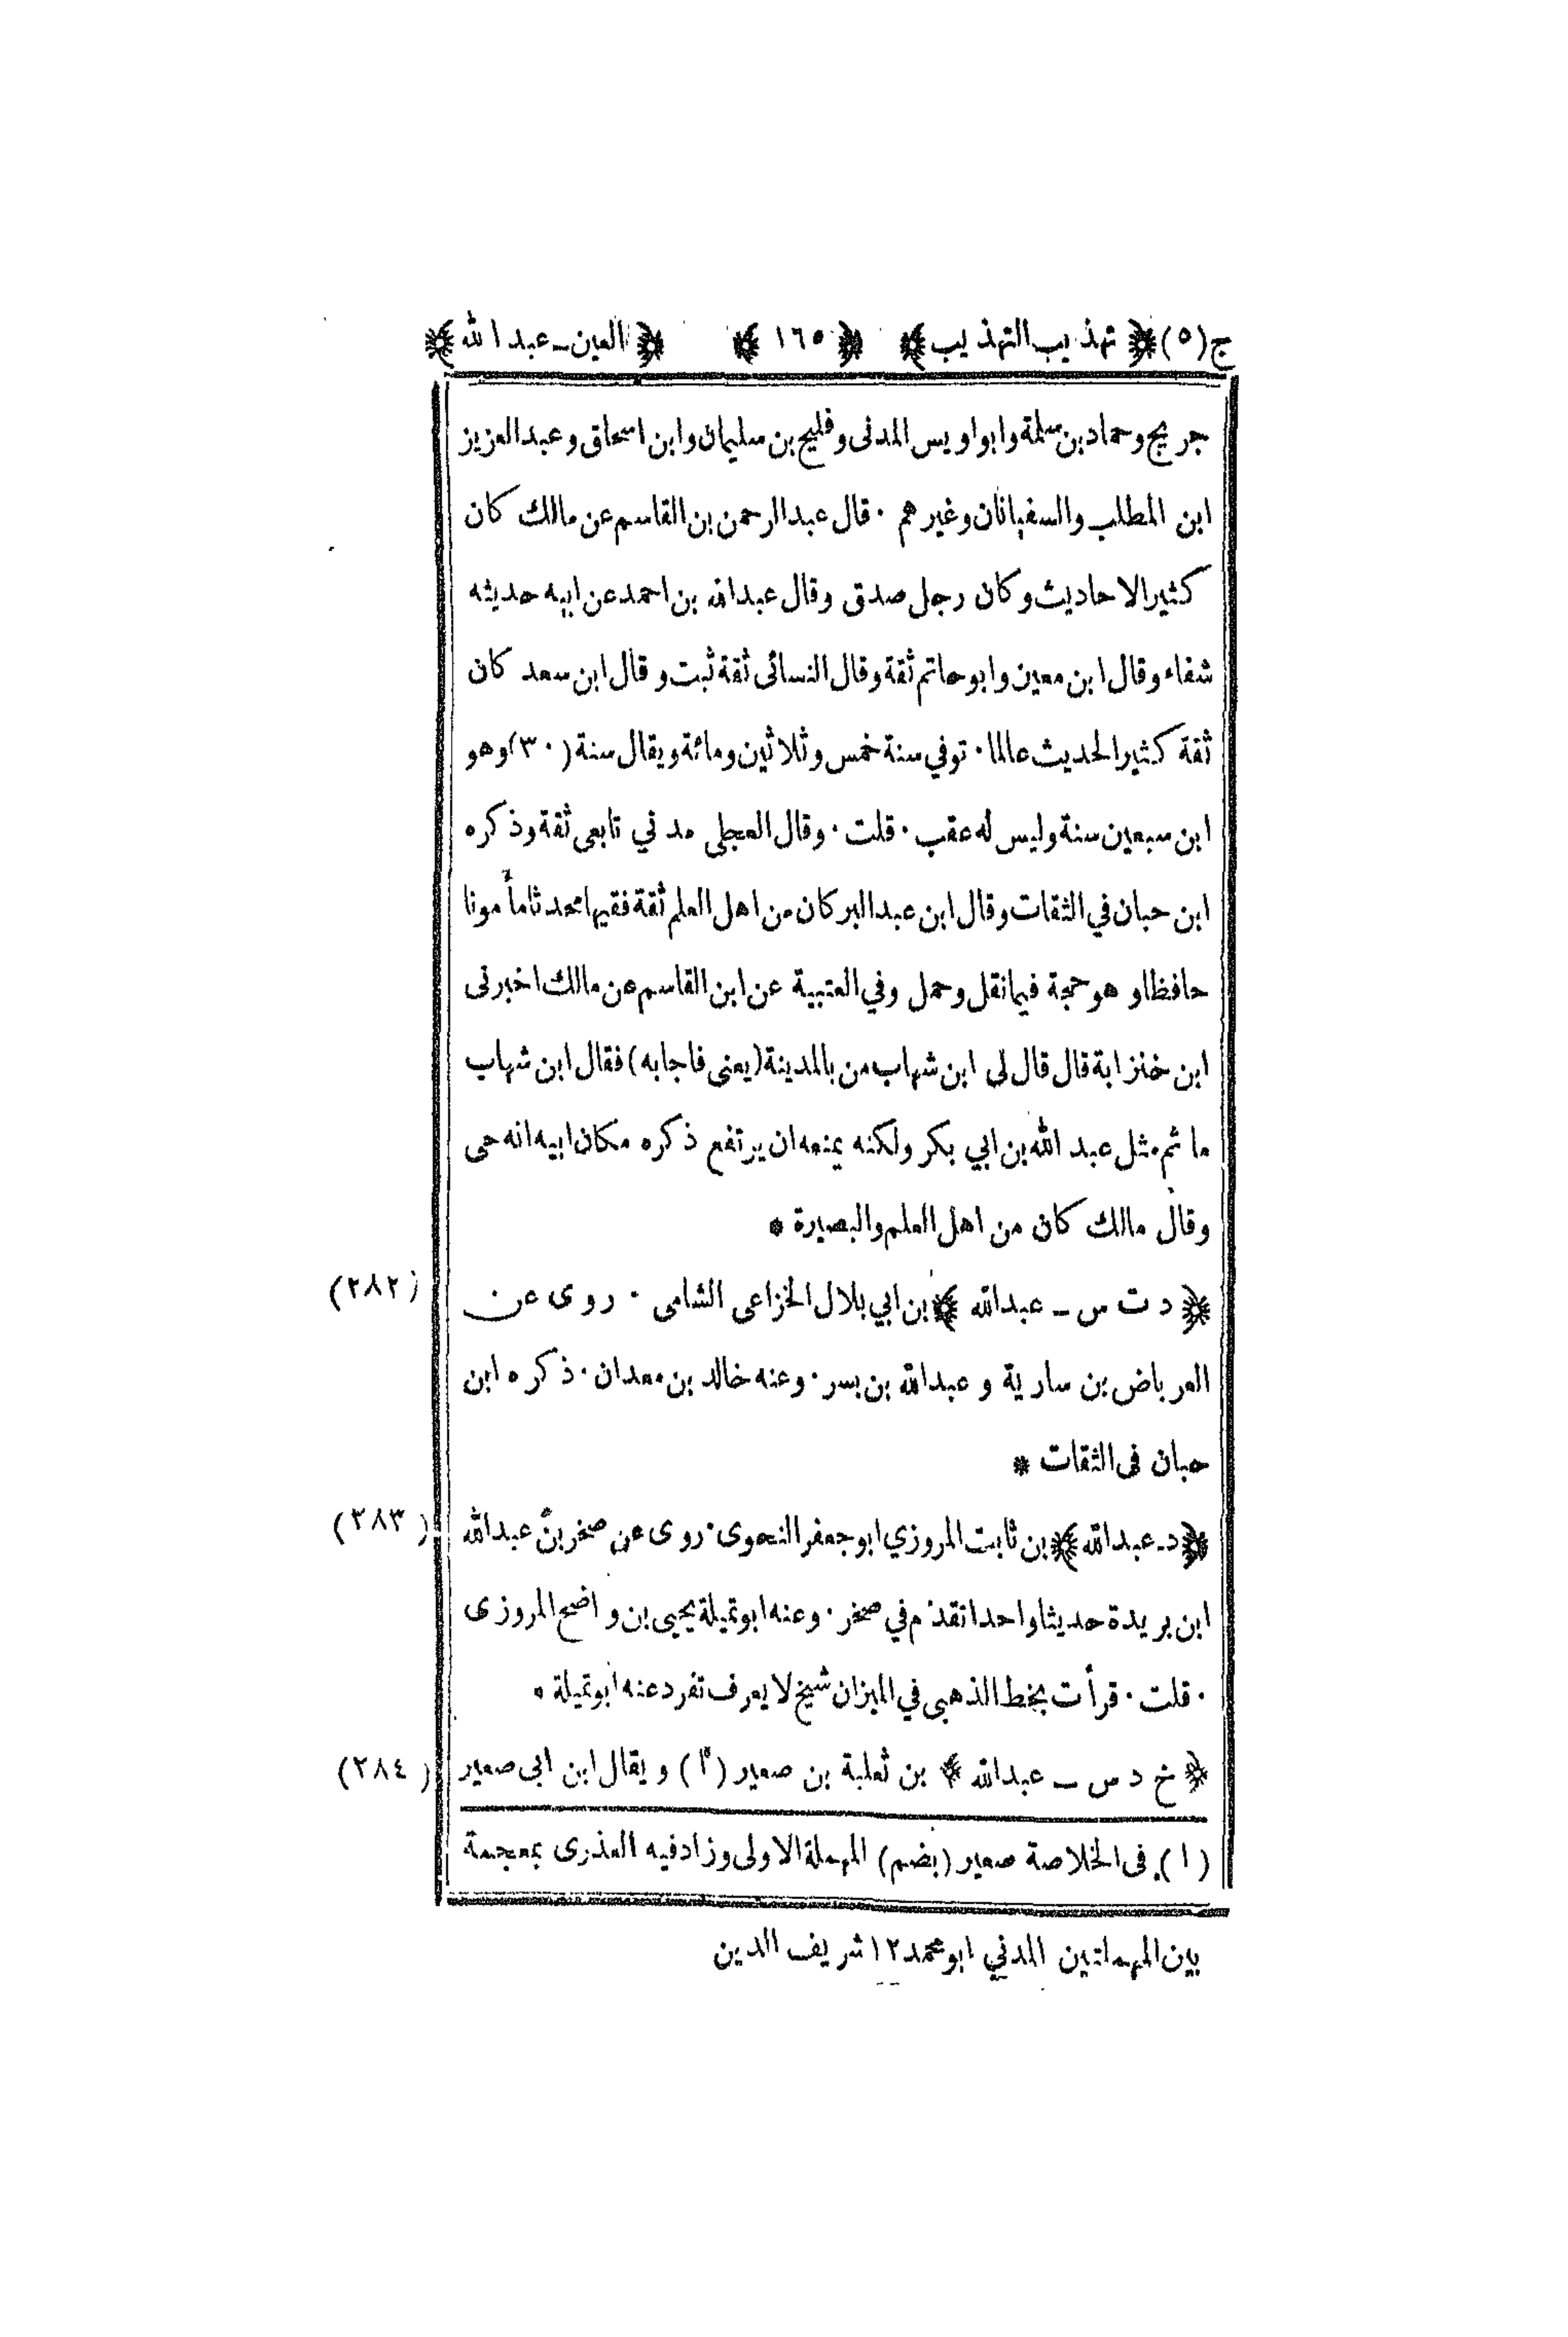 ج(٥) ﴿ تهذيب التهذيب ﴾ ﴿ ١٦٥ ﴾ ﴿ العين ـ عبد الله ﴾
جريج وحماد بن سلمة وابو اويس المدنى وفليح بن سليمان وابن اسحاق وعبد العزيز
ابن المطلب والسفيانان وغيرهم . قال عبد الرحمن بن القاسم عن مالك كان
كثير الاحاديث وكان رجل صدق وقال عبد الله بن احمد عن ابيه حديثه
شفاء وقال ابن معين وابو حاتم ثقة وقال النسائى ثقة ثبت وقال ابن سعد كان
ثقة كثير الحديث عالما . توفي سنة خمس وثلاثين ومائة ويقال سنة (٣٠) وهو
ابن سبعين سنة وليس له عقب . قلت . وقال العجلى مدني تابعى ثقة وذكره
ابن حبان في الثقات وقال ابن عبد البر كان من اهل العلم ثقة فقيها محدثا مأمونا
حافظا وهو حجة فيما نقل وحمل وفي العتبية عن ابن القاسم عن مالك اخبرنى
ابن خنزابة قال قال لى ابن شهاب من بالمدينة (يعنى فاجابه) فقال ابن شهاب
ما ثم مثل عبد الله بن ابي بكر ولكنه يمنعه ان يرتفع ذكره مكان ابيه انه حى
وقال مالك كان من اهل العلم والبصيرة *
﴿ د ت س ـ عبد الله ﴾ بن ابي بلال الخزاعى الشامى . روى عن (٢٨٢)
العرباض بن سارية و عبد الله بن بسر . وعنه خالد بن معدان . ذكره ابن
حبان فى الثقات *
﴿ د ـ عبد الله ﴾ بن ثابت المروزي ابو جعفر النحوى . روى عن صخر بن عبد الله (٢٨٣)
ابن بريدة حديثا واحدا تقدم في صخر . وعنه ابو تميلة يحيى بن واضح المروزى
. قلت . قرأت بخط الذهبى في الميزان شيخ لا يعرف تفرد عنه ابو تميلة *
﴿ خ د س ـ عبد الله ﴾ بن ثعلبة بن صعير (١) ويقال ابن ابى صعير (٢٨٤)
(١) فى الخلاصة صعير (بضم) المهملة الاولى وزاد فيه العذرى بمعجمة
بين المهملتين المدني ابو محمد ١٢ شريف الدين